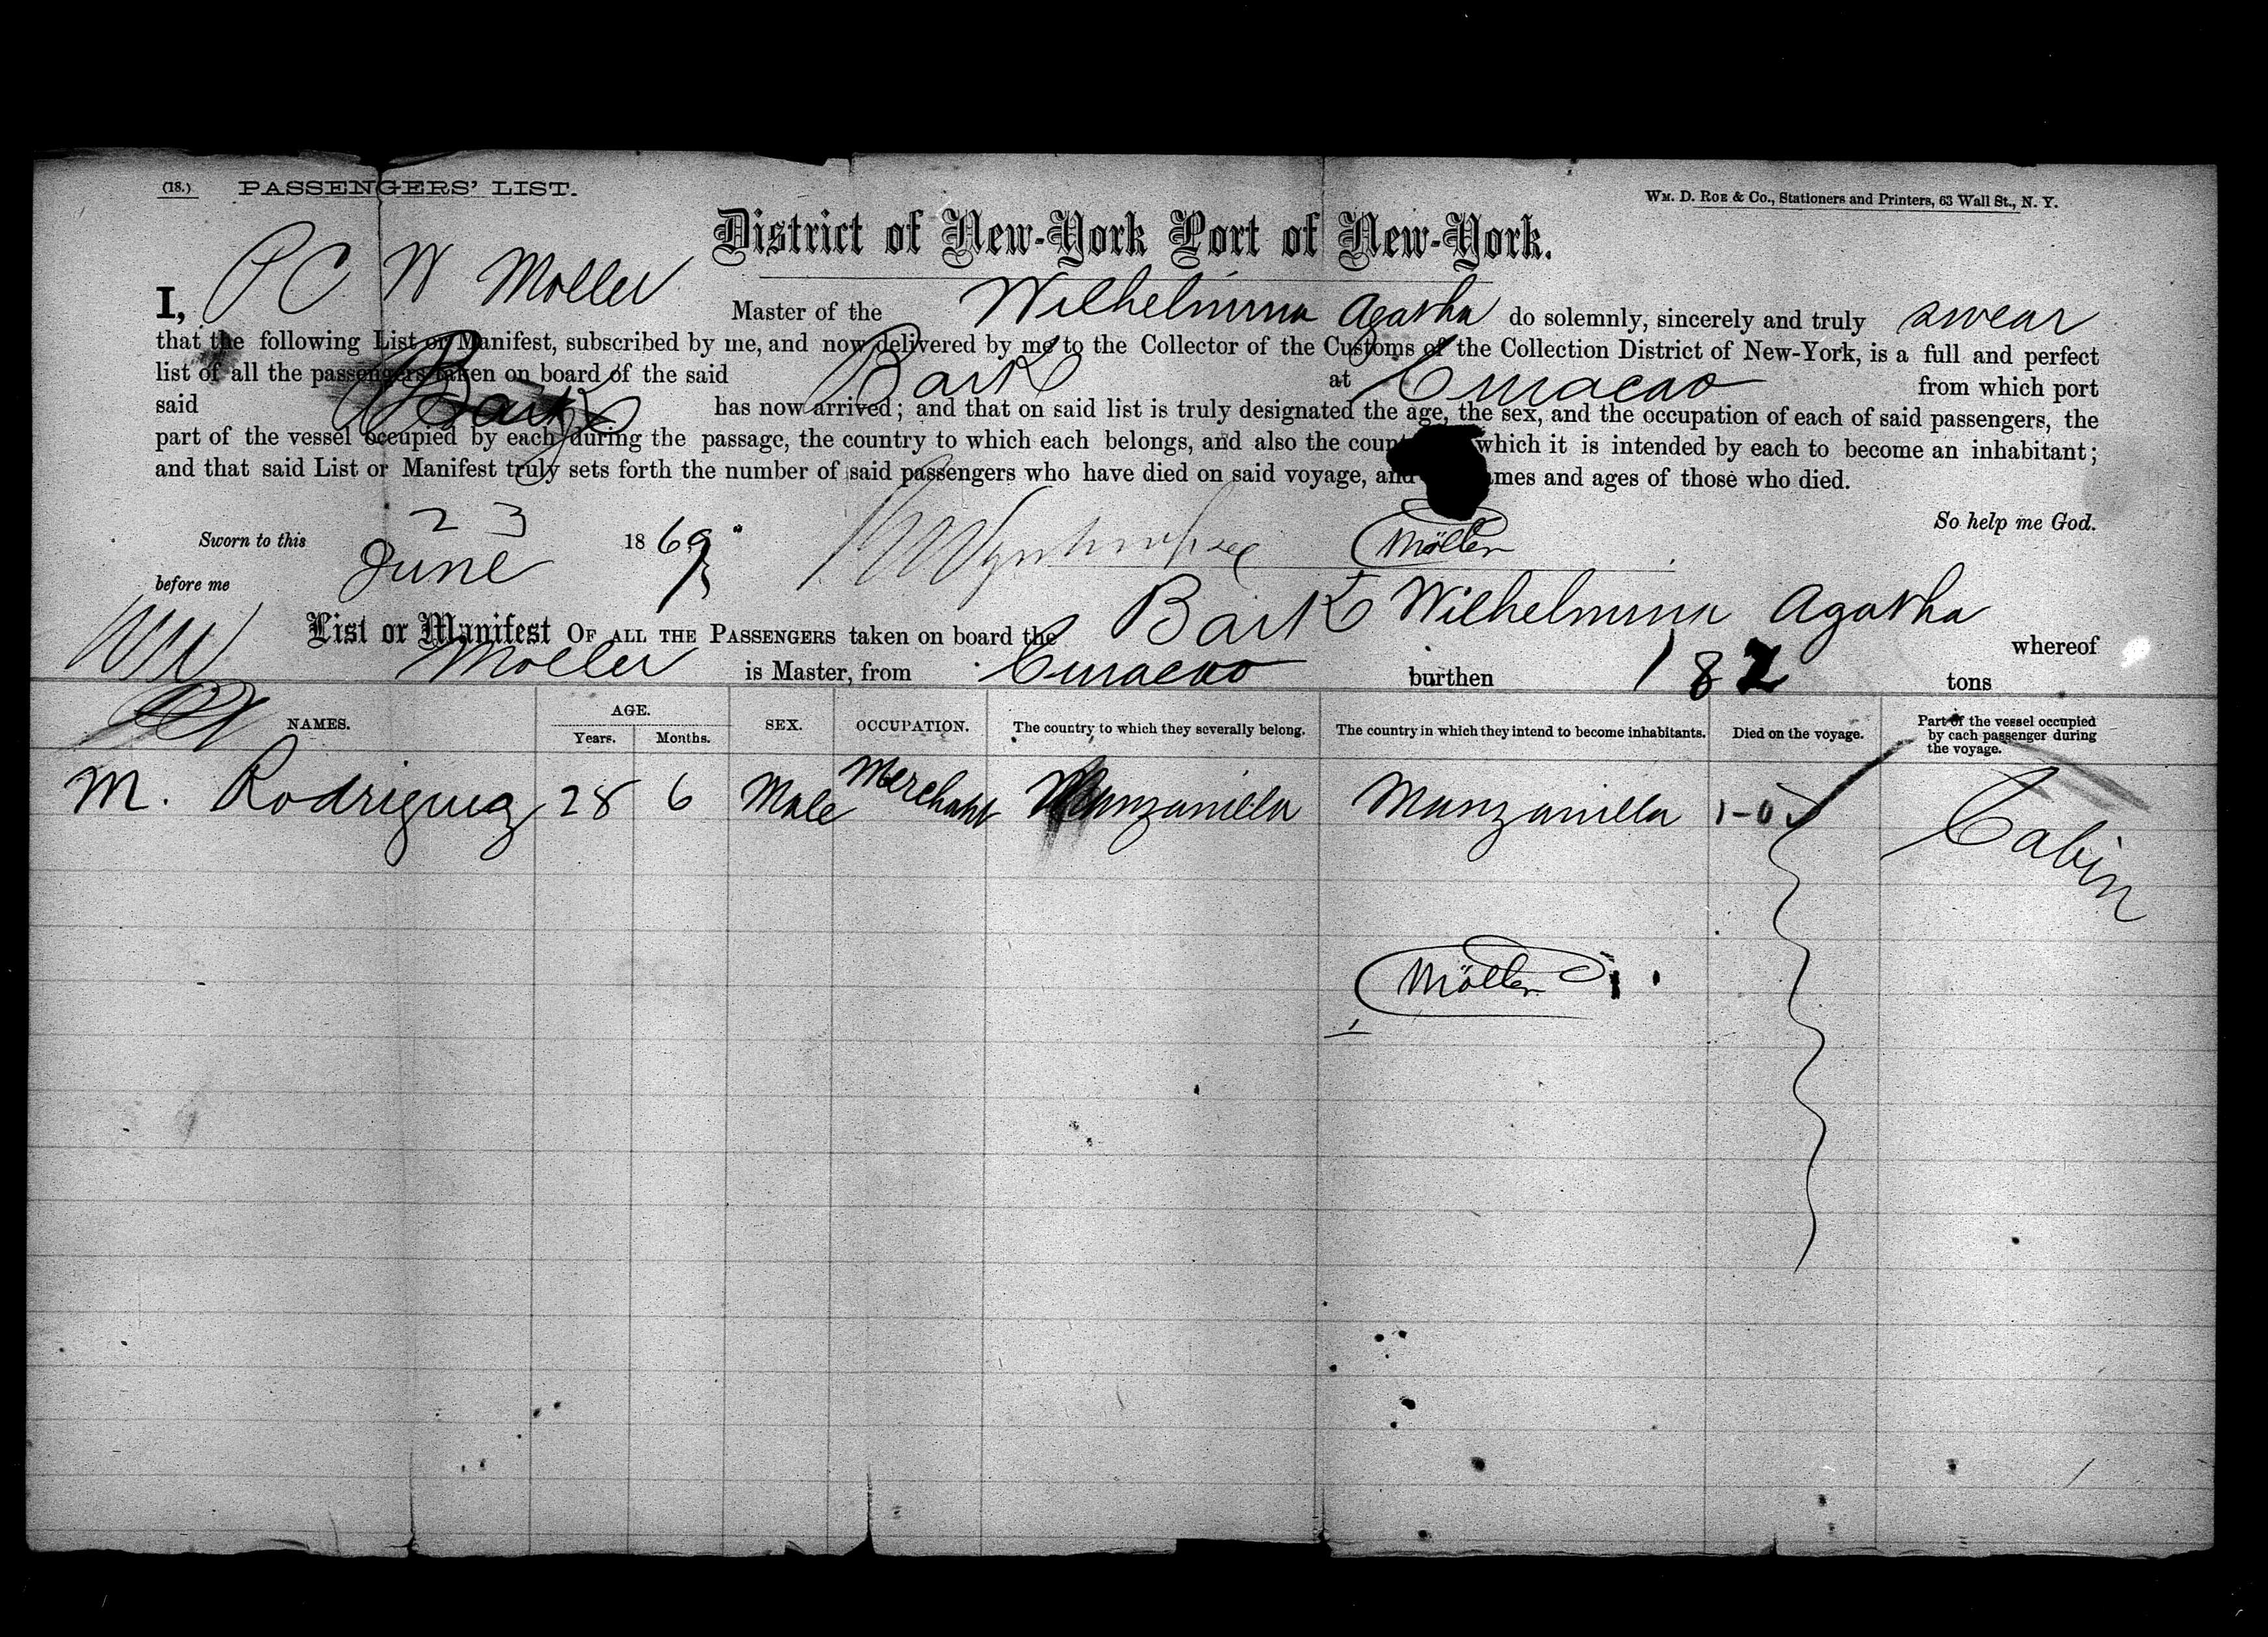 (18.) PASSENGERS' LIST.
WM. D. ROE & Co., Stationers and Printers, 63 Wall St., N. Y.
District of New-York Port of New-York.
I, P C W Moller Master of the Wilhelmina Agatha do solemnly, sincerely and truly swear
that the following List or Manifest, subscribed by me, and now delivered by me to the Collector of the Customs of the Collection District of New-York, is a full and perfect
list of all the passengers taken on board of the said Bark at Curacao from which port
said Bark has now arrived; and that on said list is truly designated the age, the sex, and the occupation of each of said passengers, the
part of the vessel occupied by each during the passage, the country to which each belongs, and also the which it is intended by each to become an inhabitant;
and that said List or Manifest truly sets forth the number of said passengers who have died on said voyage, and and ages of those who died.
So help me God.
Sworn to this 23 June 1869
Möller
before me
List or Manifest OF ALL THE PASSENGERS taken on board the Bark Wilhelmina Agatha whereof
Moller is Master, from Curacao burthen 182 tons
NAMES. AGE. Years. Months. SEX. OCCUPATION. The country to which they severally belong. The country in which they intend to become inhabitants. Died on the voyage. Part of the vessel occupied by each passenger during the voyage.
M. Rodriguez 28 6 Male Merchant Manzanilla Manzanilla Cabin
Möller